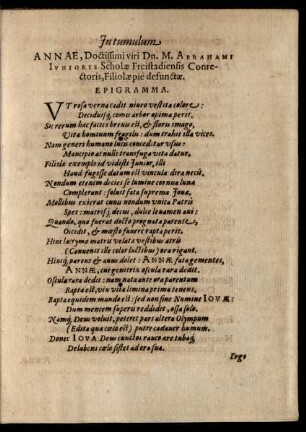 In tumulum
ANNAE, Doctissimi viri Dn. M. ABRAHAMI
IVNIORIS Scholæ Freistadiensis Conre-
ctoris, Filiolæ piè defunctæ.
EPIGRAMMA.
VT rosa verna cadit niveo vestita colore:
Deciduisq́; comis arbor opima perit,
Sic rerum hac facies brevis est, & floris imago,
Vita hominum fragilis: dum trahit illa vices.
Nam generi humano lucis conceditur usus:
Mancipio at nulli transfuga vita datur,
Filiola exemplo id vidisti Junior, illi
Hand fugisse datum est vincula dira necis.
Nondum etenim decies se lumine cornua luna
Complerant: soluit fata suprema Jova,
Mollibus exierat cunis nondum unica Patris
Spes: matrisq́; decus, dulce levamen avi:
Quando, qua fuerat docto prognata parente
Occidit, & mœsto funere rapta perit.
Hinc lacryma matris velats vestibus atris
(Convenit ille color luctibus) ora rigant.
Hincq́; parens & avus dolet: ANNÆ fata gementes,
ANNÆ, cui genitrix oscula rara dedit.
Oscula rara dedit: nam nata ante ora parentum
Rapta est, vix vitæ limina prima tenens,
Rapta equidem mundo est: sed non sine Numine IOVÆ:
Dum mentem superis reddidit, ossa solo.
Namq́; Deus voluit, peteret pars altera Olympum
(Edita qua cœlo est) putre cadaver humum.
Donec IOVA Deus cunctos rauco are tubaq́;
Delabens cœlo sistet ad ora sua.
Ergo